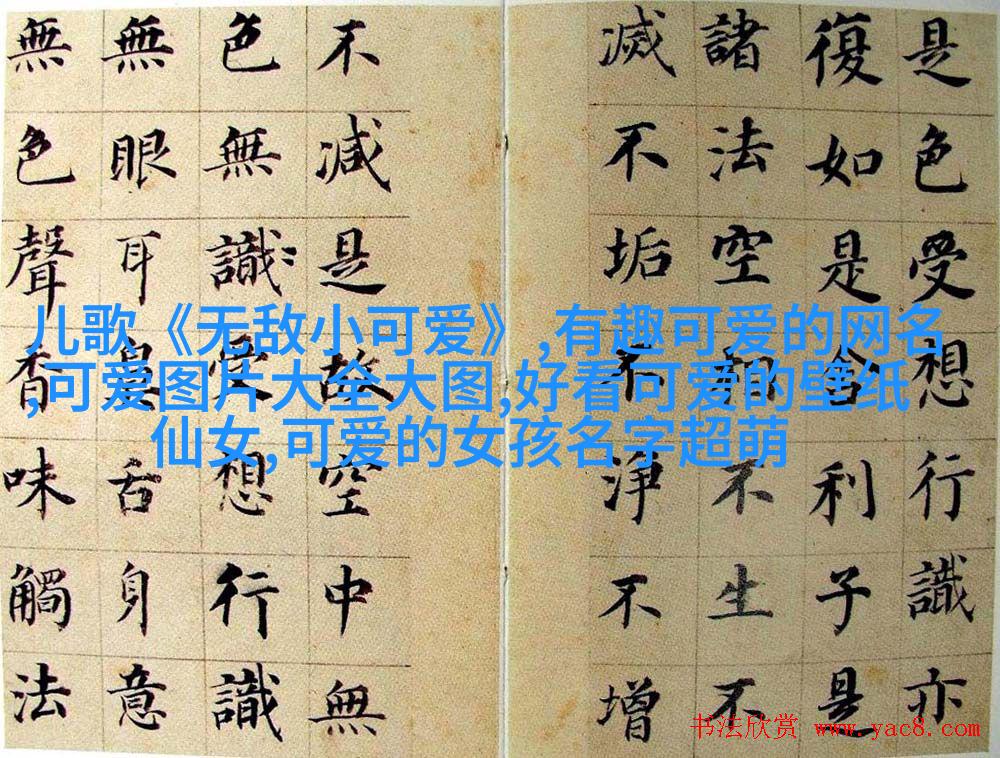 是色受想行識亦
復如是舍利子是
諸法空相不生不
滅不垢不淨不增
不減是故空中無
色無識受想行識
無眼耳鼻舌身意
無色聲香味觸法
儿歌《无敌小可爱》,有趣可爱的网名
,可爱图片大全大图,好看可爱的壁纸
仙女,可爱的女孩名字超萌
书法欣赏 www.yac8.com